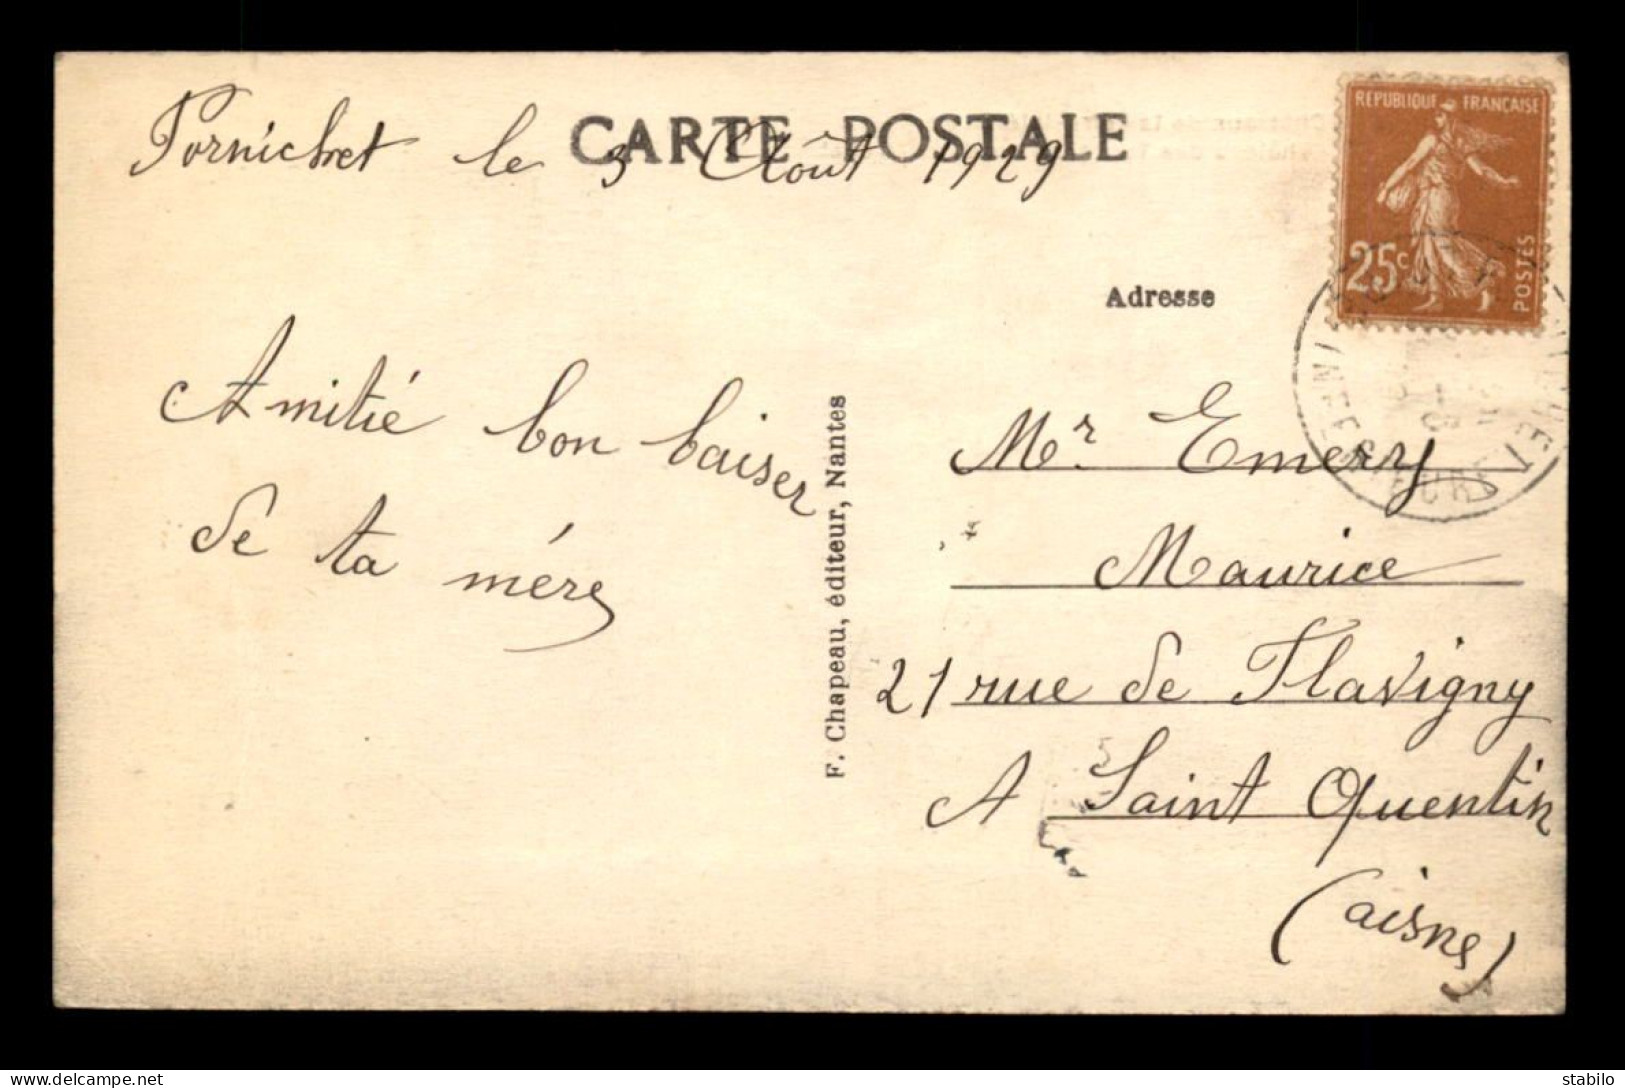 CARTE POSTALE
Pornichet le 3 Août 1929
REPUBLIQUE FRANÇAISE
25c
POSTES
Adresse
Amitié bon baiser
de ta mére
F. Chapeau, éditeur, Nantes
Mr Emery
Maurice
21 rue de Flavigny
A Saint Quentin
(aisne)
delcampe.net
stabilo